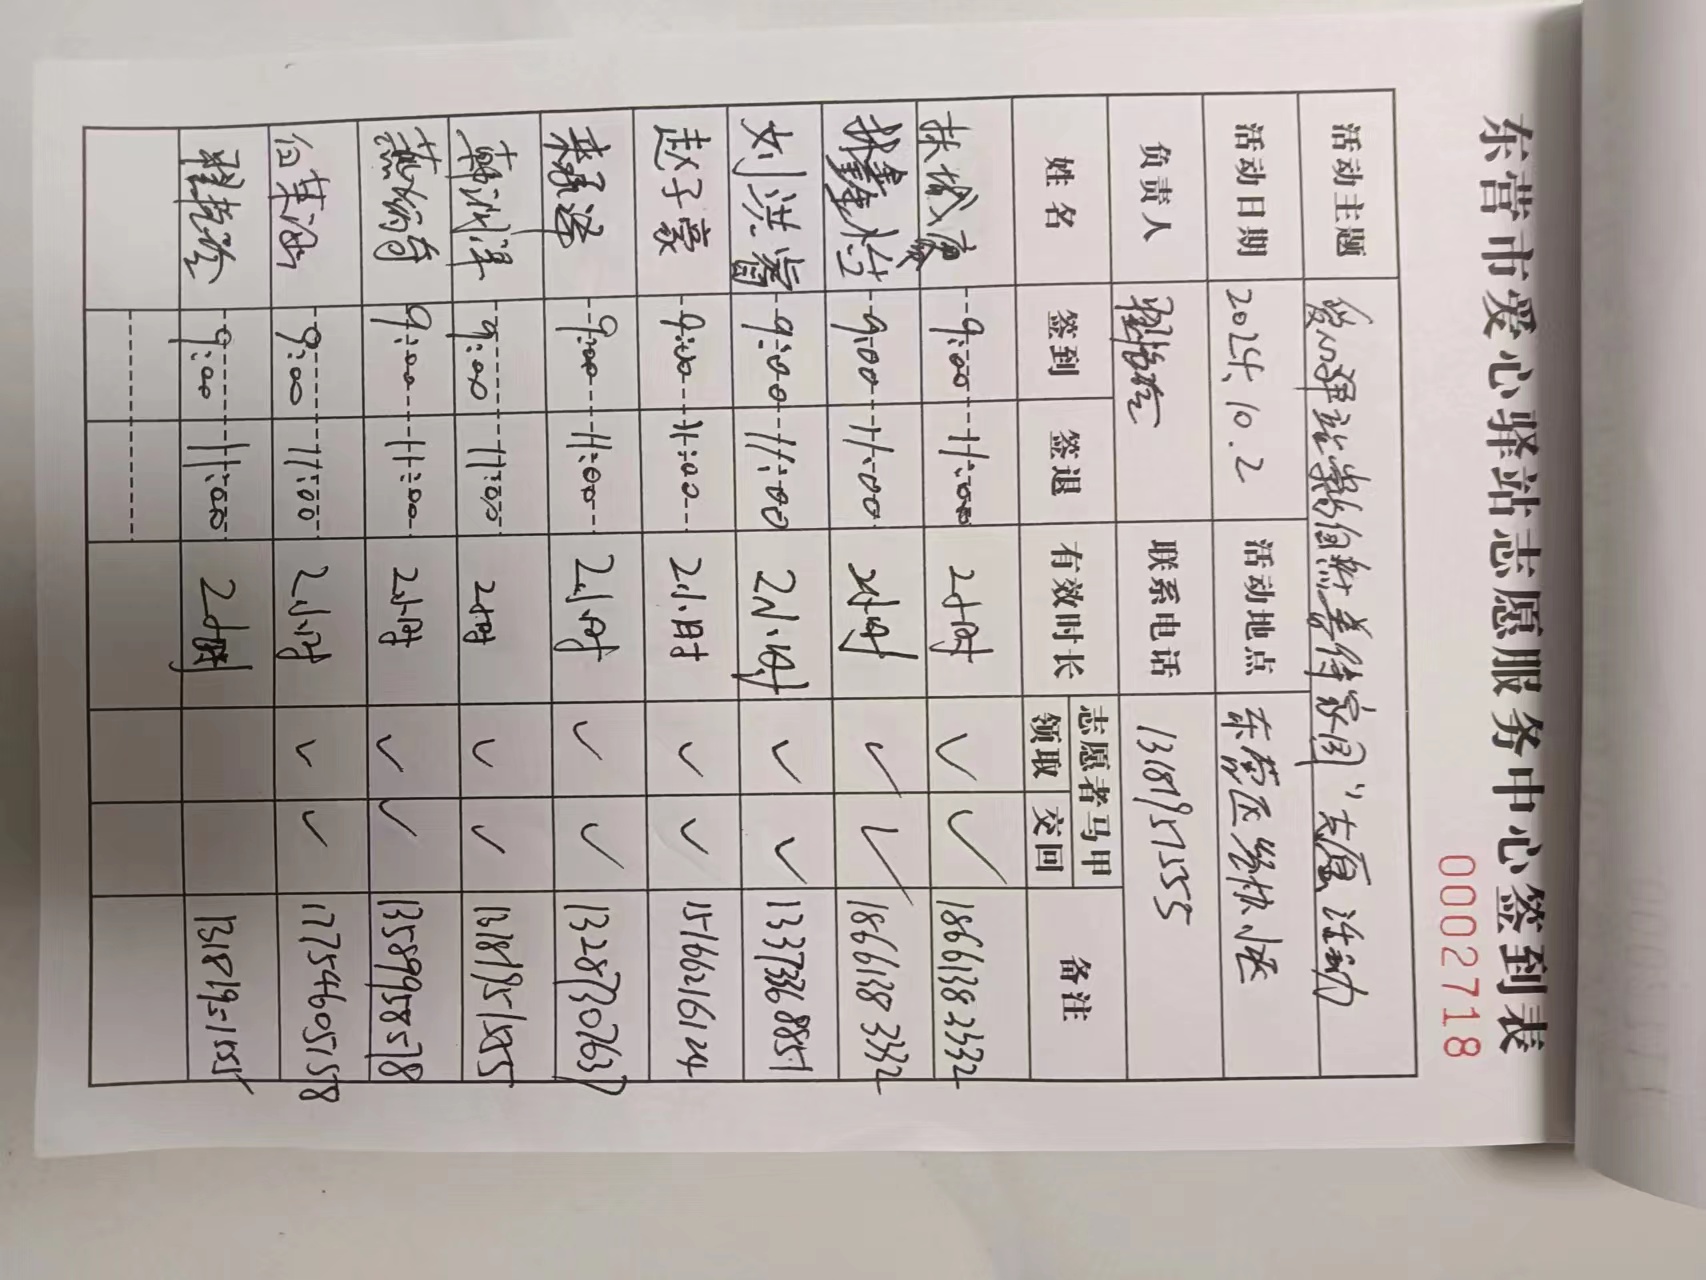 东营市爱心驿站志愿服务中心签到表
0002718
活动主题 爱心驿站"崇尚自然善待家园"志愿活动
活动日期 2024.10.2 活动地点 东营区经协小区
负责人 联系电话 13181951555
姓名 签到 签退 有效时长 志愿者马甲 领取 交回 备注
9:00 11:00 2小时 ✓ ✓ 18661383332
9:00 11:00 2小时 ✓ ✓ 18661383332
刘洪 9:00 11:00 2小时 ✓ ✓ 13373368851
赵子豪 9:00 11:00 2小时 ✓ ✓ 15166216124
9:00 11:00 2小时 ✓ ✓ 13287307637
9:00 11:00 2小时 ✓ ✓ 13181951555
9:00 11:00 2小时 ✓ ✓ 13589958578
9:00 11:00 2小时 ✓ ✓ 17754605158
9:00 11:00 2小时